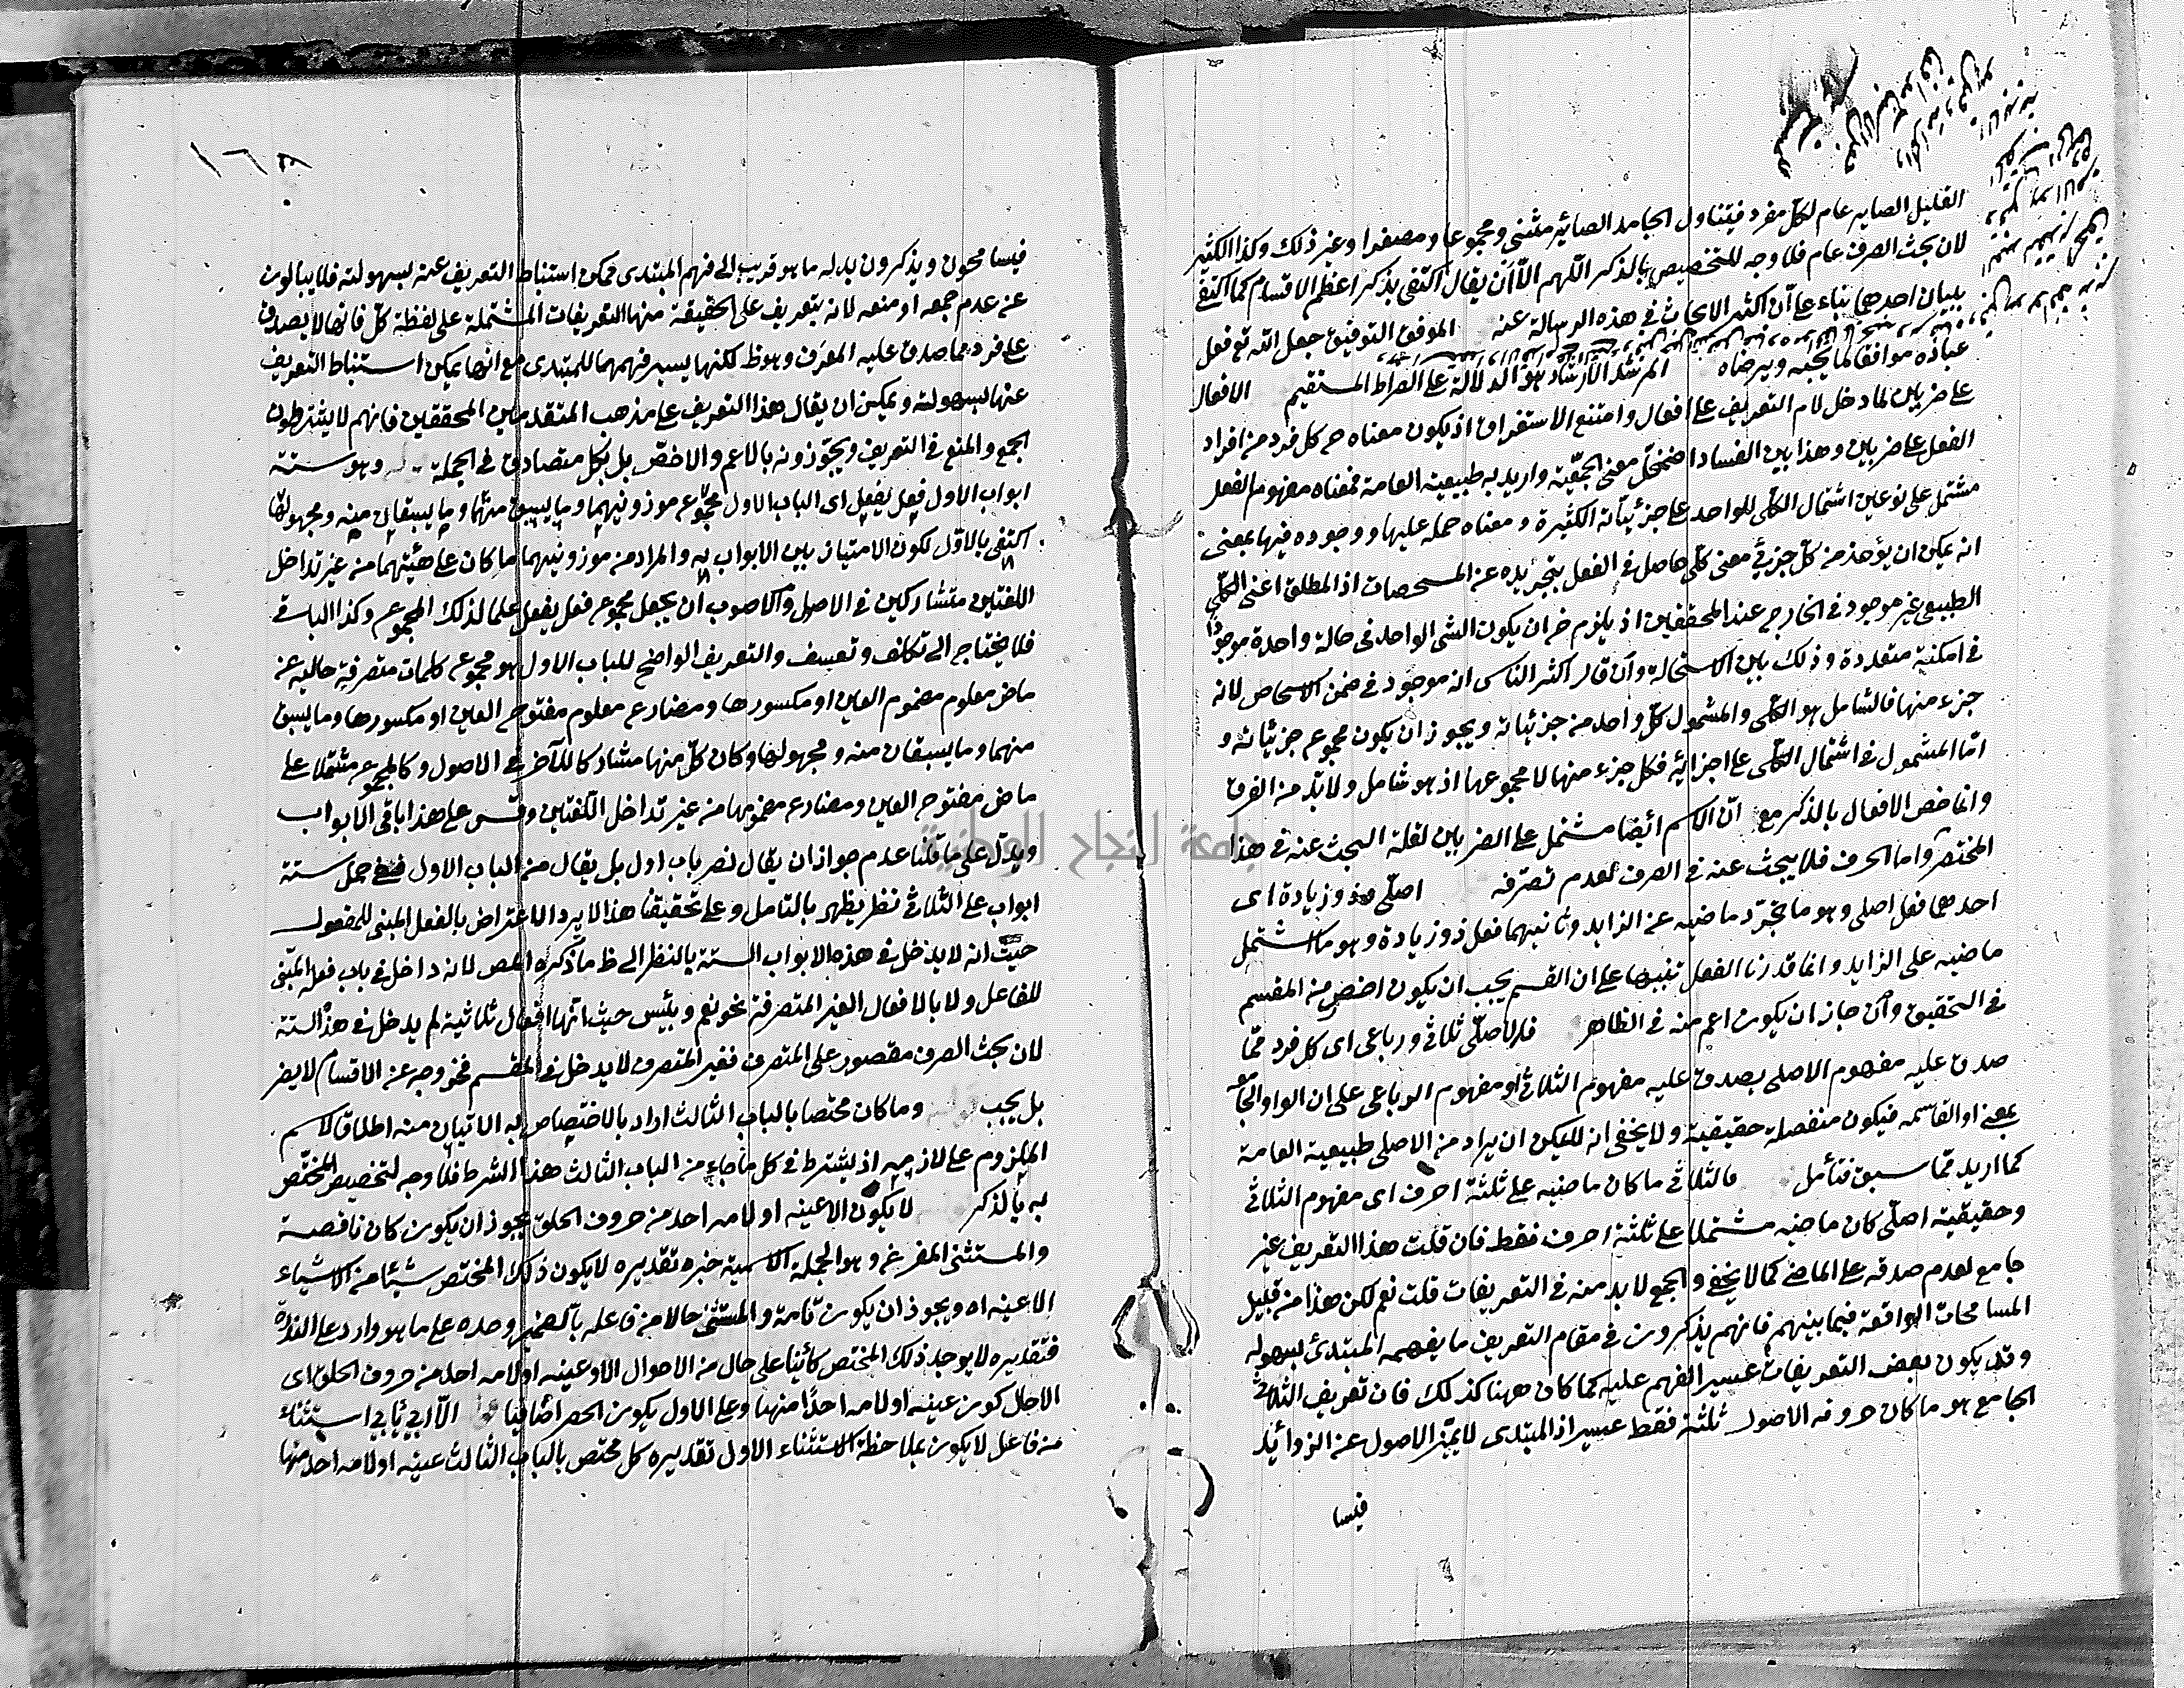 القليل الصاير عام لكل مفرد فيتناول الجامد الصائر مثنى ومجموعا ومصغرا وغير ذلك وكذا الكثير
لان بحث الصرف عام فلا وجه للتخصيص بالذكر اللهم الا ان يقال اكتفى بذكر اعظم الاقسام كما اكتفى
ببيان احدهما بناء على ان اكثر الابحاث في هذه الرسالة عنه الموفق التوفيق جعل الله تع فعل
عباده موافقا لما يحبه ويرضاه المرشد الارشاد هو الدلالة على الصراط المستقيم الافعال
على ضربين لما دخل لام التعريف على افعال وامتنع الاستغراق اذ يكون معناه ح كل فرد من افراد
الفعل على ضربين وهذا بين الفساد اضمحل معنى الجمعية واريد به طبيعية العامة فمعناه مفهوم الفعل
مشتمل على نوعين اشتمال الكلي للواحد على جزئياته الكثيرة ومعناه حمله عليها ووجوده فيها بمعنى
انه يمكن ان يؤخذ من كل جزئي معنى كلي حاصل في الفعل بتجريده عن المشخصات اذ المطلق اعنى الكلي
الطبيعي غير موجود في الخارج عند المحققين اذ يلزم ح ان يكون الشى الواحد في حالة واحدة موجودا
في امكنة متعددة وذلك بين الاستحالة وان قال اكثر الناس انه موجود في ضمن الاشخاص لانه
جزء منها فالشامل هو الكلى والمشمول كل واحد من جزئياته ويجوز ان يكون مجموع جزئياته و
اما المشمول في اشتمال الكلى على اجزائه فكل جزء منها لا مجموعها اذ هو شامل ولا بد من الفرق
وانما خص الافعال بالذكر مع ان الاسم ايضا مشتمل على الضربين لقلة البحث عنه في هذا
المختصر واما الحرف فلا يبحث عنه في الصرف لعدم تصرفه اصلى وذو زيادة اى
احدهما فعل اصلى وهو ما تجرد ماضيه عن الزايد وثانيهما فعل ذو زيادة وهو ما اشتمل
ماضيه على الزايد وانما قدرنا الفعل تنبيها على ان القسم يجب ان يكون اخص من المقسم
في التحقيق وان جاز ان يكون اعم منه في الظاهر فالاصلى ثلاثي ورباعى اى كل فرد مما
صدق عليه مفهوم الاصلى يصدق عليه مفهوم الثلاثى او مفهوم الرباعى على ان الواو الجامعة
بمعنى او القاسمه فيكون منفصلة حقيقية ولا يخفى انه لا يمكن ان يراد من الاصلى طبيعية العامة
كما اريد مما سبق فتأمل فالثلاثي ما كان ماضيه على ثلثة احرف اى مفهوم الثلاثي
وحقيقية اصلى كان ماضيه مشتملا على ثلثة احرف فقط فان قلت هذا التعريف غير
جامع لعدم صدقه على الماضى كما لا يخفى والجمع لا بد منه في التعريفات قلت نعم لكن هذا من قبيل
المسامحات الواقعة فيما بينهم فانهم يذكرون في مقام التعريف ما يفهمه المبتدى بسهوله
وقد يكون بعض التعريفات عسير الفهم عليه كما كان ههنا كذلك فان تعريف الثلاثي
الجامع هو ما كان حروفه الاصول ثلثة فقط عسير اذ المبتدى لا يميز الاصول عن الزوائد
فيسا
١٦٨
فيسامحون ويذكرون بدله ما هو قريب الى فهم المبتدى ممكن استنباط التعريف عنه بسهولة فلا يبالون
عن عدم جمعه او منعه لانه يتعريف على الحقيقة منها التعريفات المشتملة على لفظة كل فانها لا يصدق
على فرد مما صدق عليه المعرف وهو ظ لكنها يسير فهمها للمبتدى مع انها يمكن استنباط التعريف
عنها بسهولة ويمكن ان يقال هذا التعريف على مذهب المتقدمين المحققين فانهم لا يشترطون
الجمع والمنع في التعريف ويجوزونه بالاعم والاخص بل بكل متصادق في الجملة وهو ستة
ابواب الاول فعل يفعل اى الباب الاول مجموع موزونيهما وما يسبق منهما وما يسبقان منه ومجهولها
اكتفى بالاول لكون الامتياز بين الابواب به والمراد من موزونيهما ما كان على هيئتهما من غير تداخل
اللغتين متشاركين في الاصول والاصوب ان يجعل مجموع فعل يفعل علما لذلك المجموع وكذا الباقي
فلا يحتاج الى تكلف وتعسف والتعريف الواضح للباب الاول هو مجموع كلمات متصرفة خالية عن
ماض معلوم مضموم العين او مكسورها ومضارع معلوم مفتوح العين او مكسورها وما يسبق
منهما وما يسبقان منه ومجهولها وكان كل منها مشاركا للآخر في الاصول وكالمجموع مشتملا على
ماض مفتوح العين ومضارع مضمومها من غير تداخل اللغتين وقس على هذا باقى الابواب
ويدل على ما قلنا عدم جواز ان يقال نصر باب اول بل يقال من الباب الاول ففى حمل ستة
ابواب على الثلاثي نظر يظهر بالتامل وعلى تحقيقنا هذا لا يرد الاعتراض بالفعل المبنى للمفعول
حيث انه لا يدخل في هذه الابواب الستة بالنظر الى ظ ما ذكره المص لانه داخل في باب فعله المبنى
للفاعل ولا بالافعال الغير المتصرفة نحو نعم وبئس حيث انها افعال ثلاثية لم يدخل في هذه الستة
لان بحث الصرف مقصور على المتصرف فغير المتصرف لا يدخل في المقسم فخروجه عن الاقسام لا يضر
بل يجب وما كان مختصا بالباب الثالث اراد بالاختصاص به الاتيان منه اطلاقا لاسم
الملزوم على لازمه اذ يشترط في كل ما جاء من الباب الثالث هذا الشرط فلا وجه لتخصيص المختص
به بالذكر لا يكون الا عينه او لامه احد من حروف الحلق يجوز ان يكون كان ناقصة
والمستثنى المفرغ وهو الجملة الاسمية خبره تقديره لا يكون ذلك المختص شيئا من الاشياء
الا عينه اه ويجوز ان يكون تامة والمستثنى حالا من فاعله بالضمير وحده على ما هو وارد على الندرة
فتقديره لا يوجد ذلك المختص كائنا على حال من الاحوال الا وعينه او لامه احد من حروف الحلق اى
الا حال كون عينه او لامه احدا منها وعلى الاول يكون الحصر اضافيا الا ابى يابى استثناء
من فاعل لا يكون بملاحظة الاستثناء الاول تقديره كل مختص بالباب الثالث عينه او لامه احد منها
جامعة النجاح الوطنية